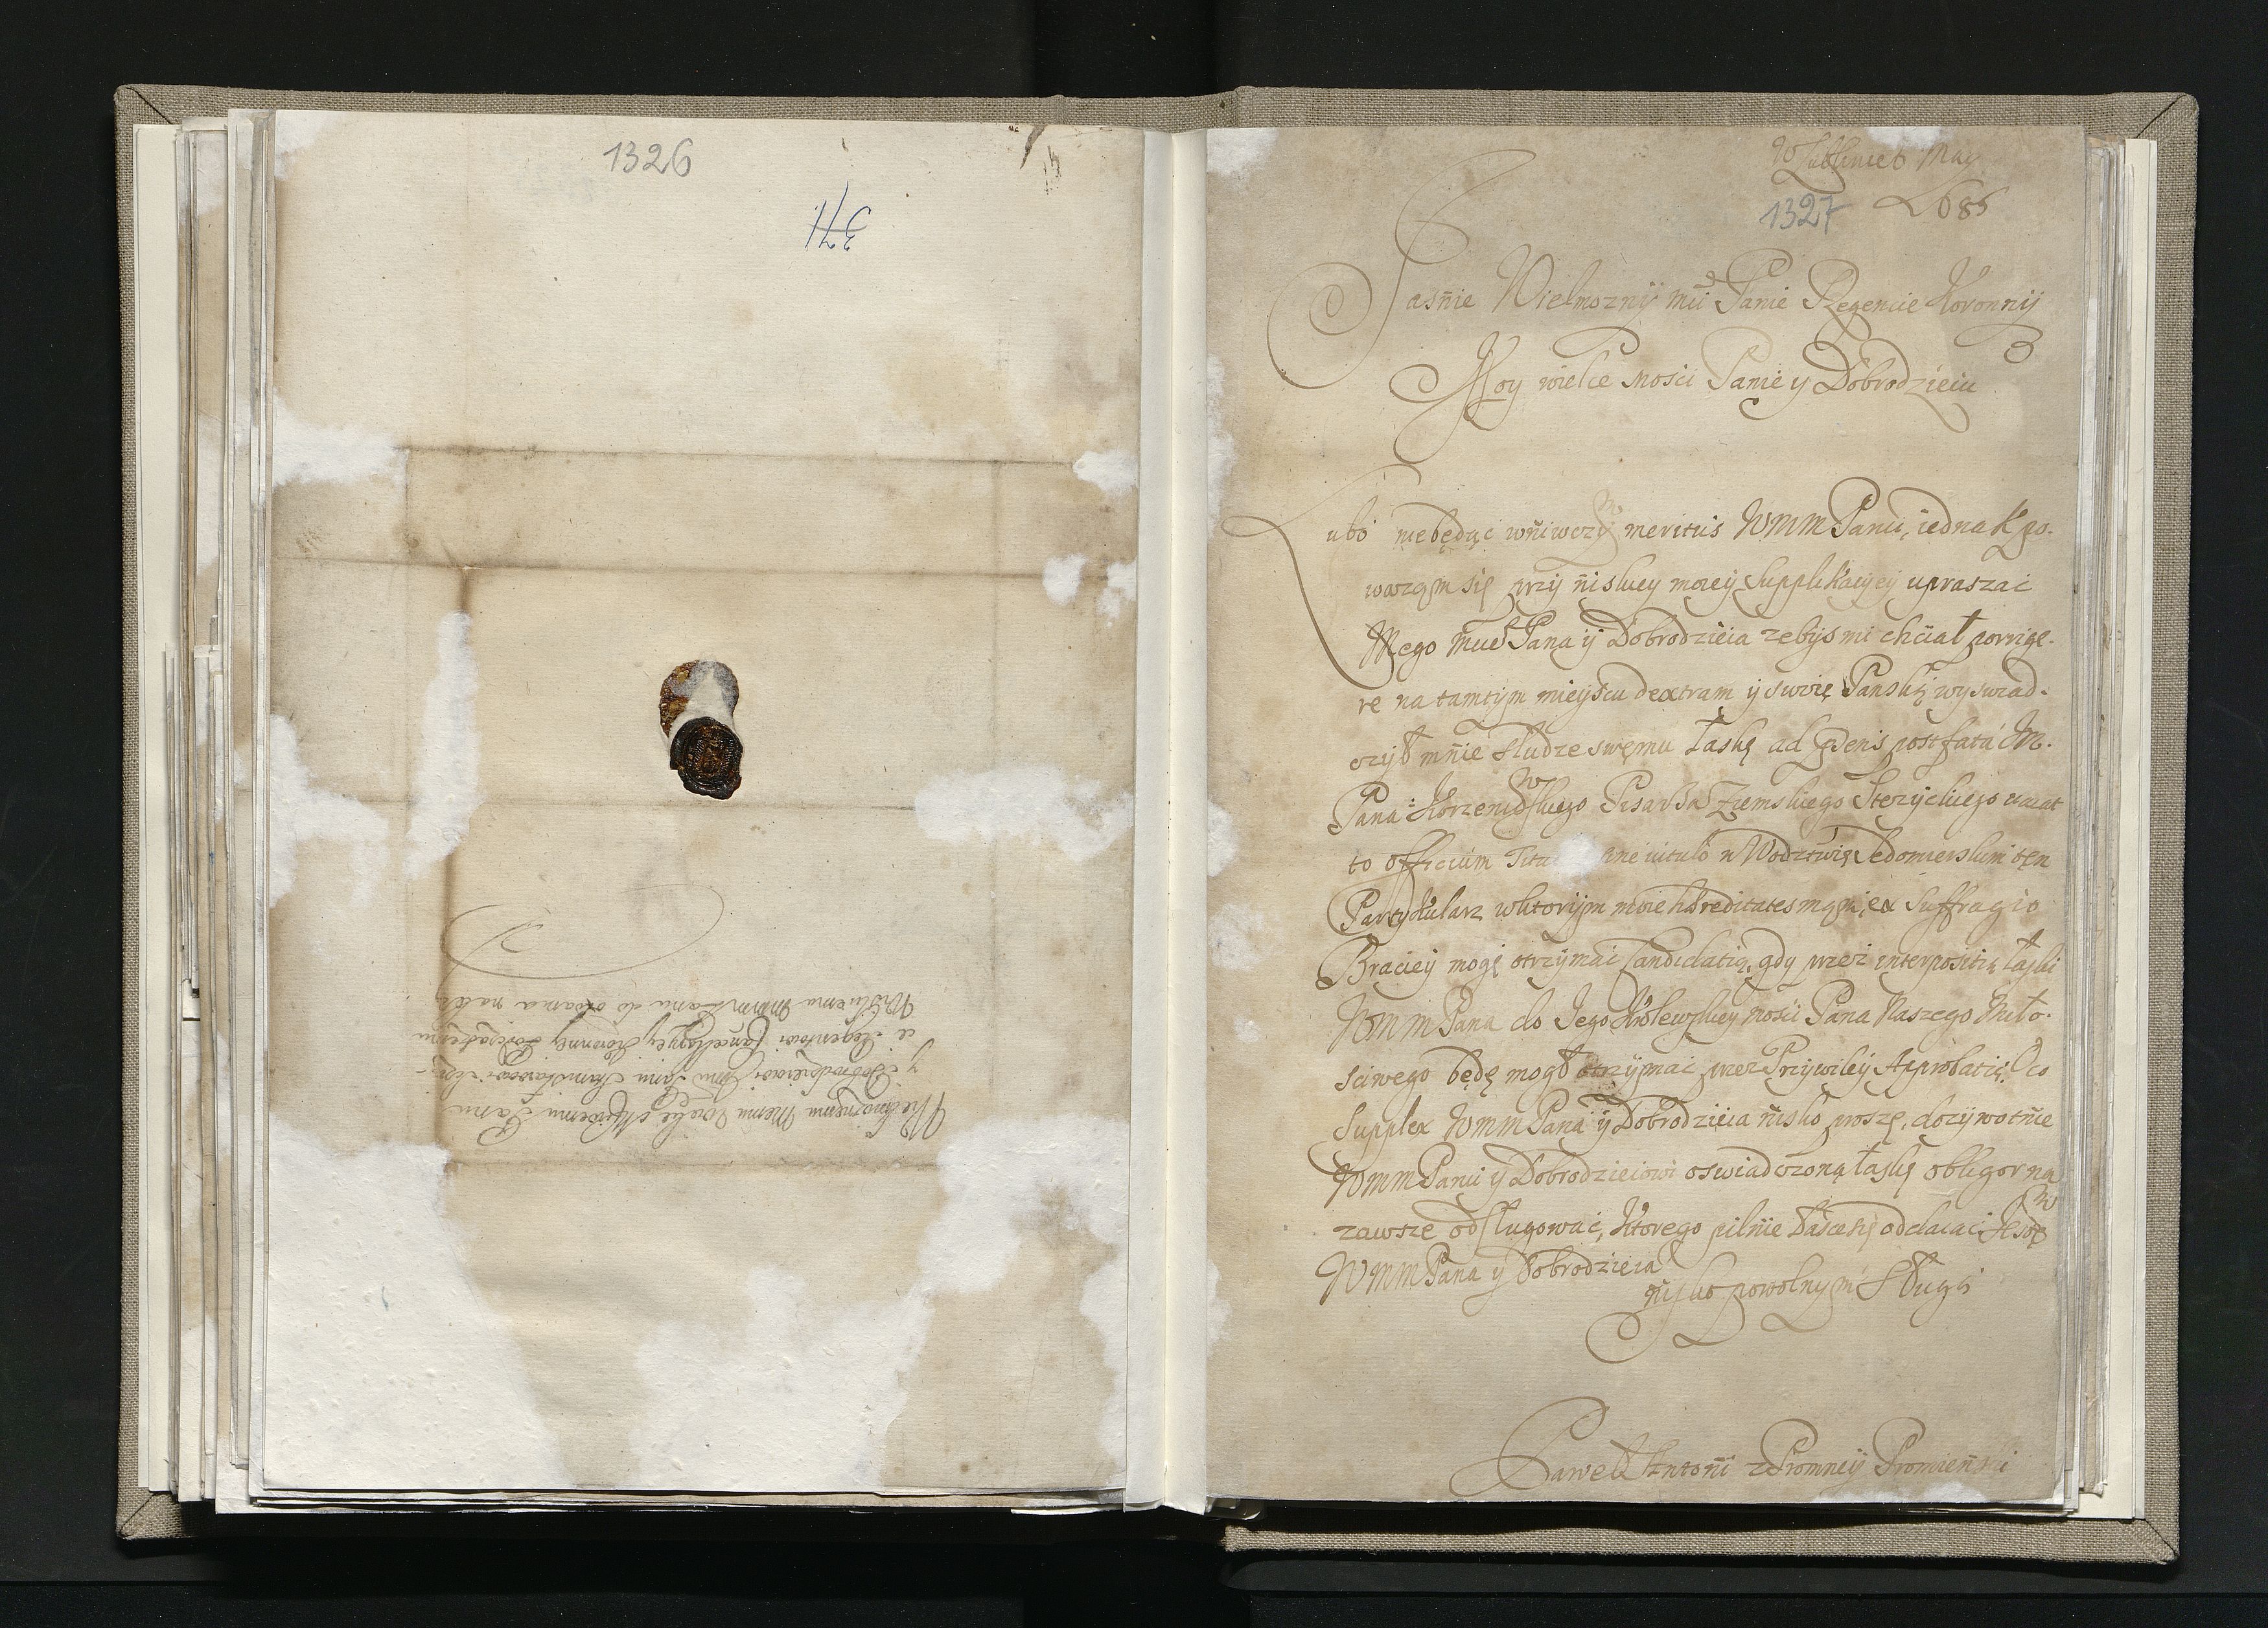 1326
371
Wielmoznemu Memu Wielce Mściwemu Panu
y Dobrodzieiowi Jmu Panu Stanisławowi
Regentowi Cancellaryey Koronney
MMPanu do oddania należy
W Lublinie 6 May
1327 1685
Jasnie Wielmozny mu Panie Regencie Koronny
Moy wielce Mosci Panie y Dobrodzieiu
Lubo niebędąc wniwczym meritus WMMPanu, iednak po-
wazam się przy niskiey moiey Supplikacyey upraszac
Mego Mue Pana y Dobrodzieia zebys mi chciał porrige-
re na tamtym mieyscu dextram y swoię Panską wyswiad-
czył mnie słudze swemu łaskę ad post fata JM.
Pana Korzeniowskiego Pisarza Ziemskiego Stezyckiego
to officium w Wodztwie Sędomierskim ten
Partykularz wktorym moie haereditates mam, ex Suffragio
Braciey mogę otrzymac Candidatią, gdy przez interpositią łaski
WMMPana do Jego Krolewskiey Mosci Pana Naszego Miło-
sciwego będę mogł otrzymac przez Przywiley Approbatią. Oco
Supplex WMMPana y Dobrodzieia nisko proszę, dozywotnie
WMMPanu y Dobrodzieiowi oswiadczoną łaskę obligor na
zawsze odsługowac, ktorego pilnie łasce się oddaiac Jestę
WMMPana y Dobrodzieia
nisko powolnym Sługą
Paweł Antoni z Promney Promieński